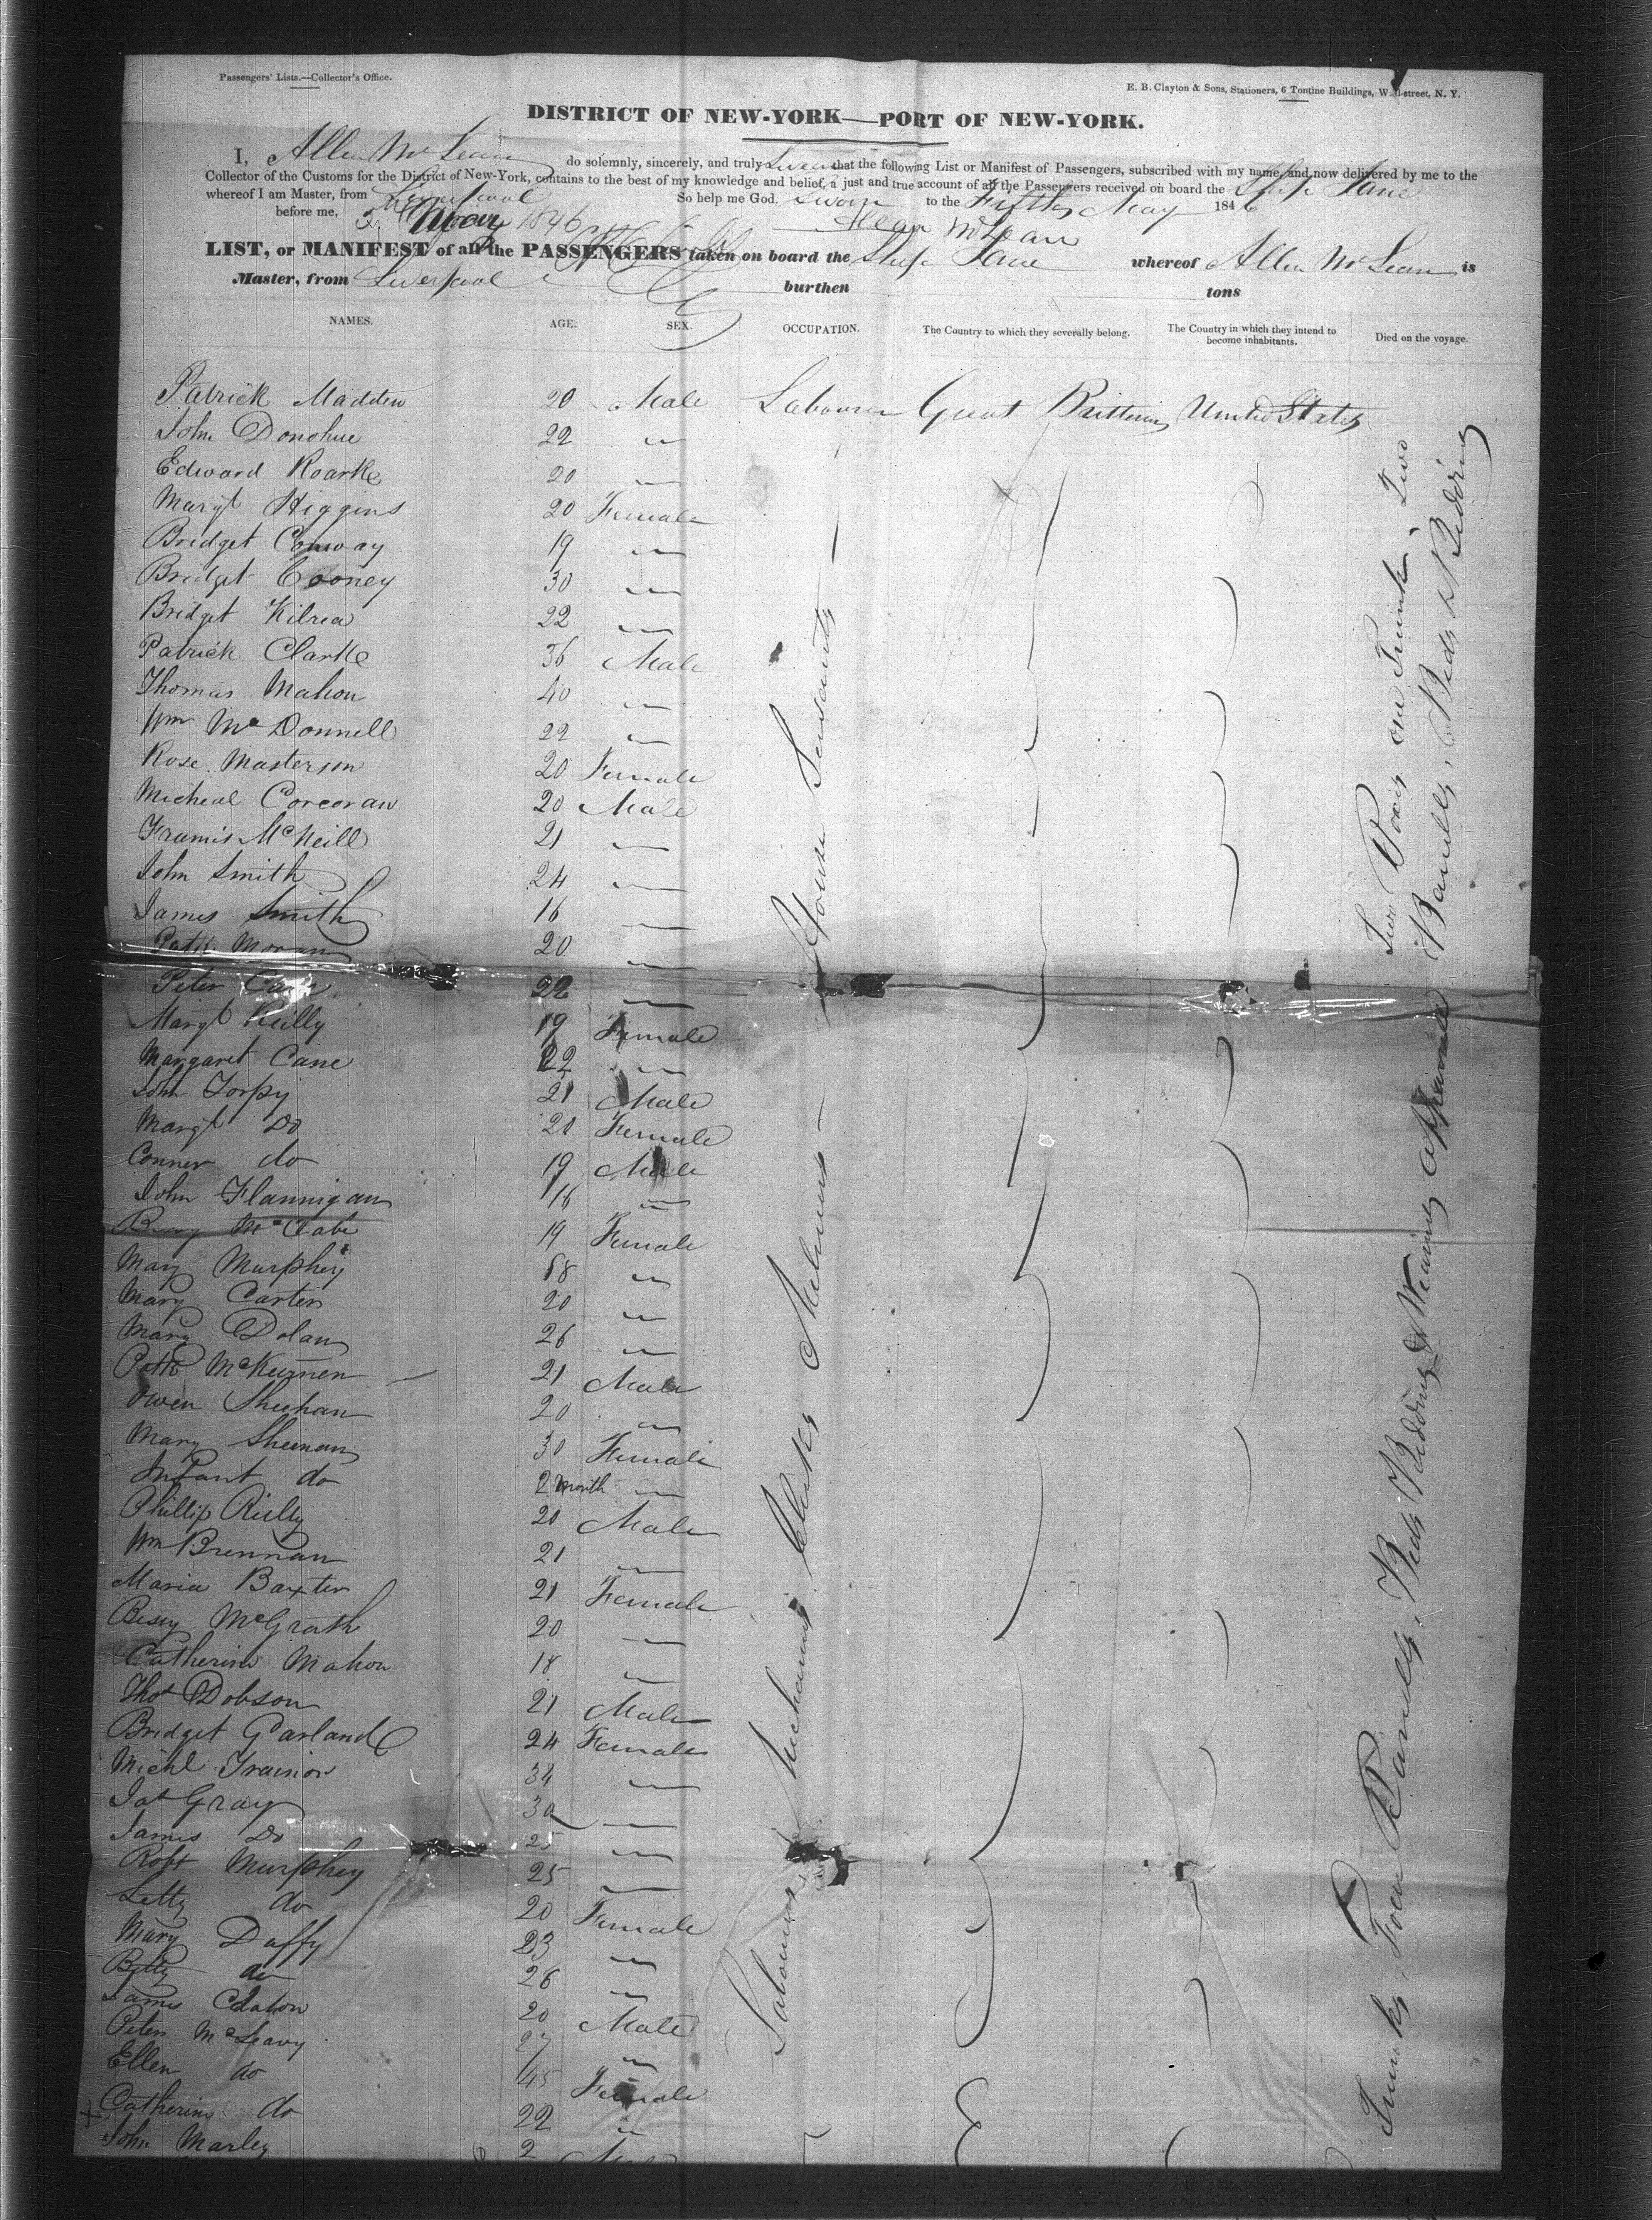 Passengers' Lists.—Collector's Office.
E. B. Clayton & Sons, Stationers, 6 Tontine Buildings, Wall-street, N. Y.
DISTRICT OF NEW-YORK—PORT OF NEW-YORK.
I, Allen McLean do solemnly, sincerely, and truly Swear that the following List or Manifest of Passengers, subscribed with my name, and now delivered by me to the
Collector of the Customs for the District of New-York, contains to the best of my knowledge and belief, a just and true account of all the Passengers received on board the Ship Jane
whereof I am Master, from Liverpool So help me God. Sworn to the Fifth May 1846
before me, 5 May 1846 Allean McLean
LIST, or MANIFEST of all the PASSENGERS taken on board the Ship Jane whereof Allen McLean is
Master, from Liverpool burthen tons
NAMES. AGE. SEX. OCCUPATION. The Country to which they severally belong. The Country in which they intend to become inhabitants. Died on the voyage.
Patrick Madden 20 Male Labourer Great Brittian United States
John Donohue 22 "
Edward Roarke 20 "
Margt Higgins 20 Female
Bridget Conway 19 "
Bridget Cooney 30 "
Bridget Kilrea 22 "
Patrick Clarke 36 Male
Thomas Mahon 40 "
Wm McDonnell 22 "
Rose Masterson 20 Female
Micheal Corcoran 20 Male
Framis McNeill 21 "
John Smith 24 "
James Smith 16 "
Patk Moran 20 "
Peter 22 "
Margt Reilly 19 Female
Margaret Cane 22 "
John Torpy 21 Male
Margt Do 21 Female
Conner do 19 Male
John Flannigan 16 "
McCabe 19 Female
Mary Murphey 18 "
Mary Carter 20 "
Mary Dolan 26 "
Patk McKeirnen 21 Male
Owen Sheehan 20 "
Mary Sheenan 30 Female
Infant do 2 month "
Phillip Rielly 20 Male
Wm Brennan 21 "
Maria Baxter 21 Female
Bessy McGrath 20 "
Catherine Mahon 18 "
Thos Dobson 21 Male
Bridget Garland 24 Female
Michl Trainor 34 "
Jas Gray 30 "
James Do 25 "
Robt Murphey 25 "
Letty do 20 Female
Mary Duffy 23 "
Betty do 26 "
James 20 Male
Peter McLeavy 27 "
Ellen do 45 Female
Catherine do 22 "
John Marley 2
Labourers, Mechanics, Clerks, Milliners — House Servants
Trunks, Four Barrells, Beds Bedding & Wearing Apparel
Two Boxes one Trunk, Two
Barrells, Beds & Bedding